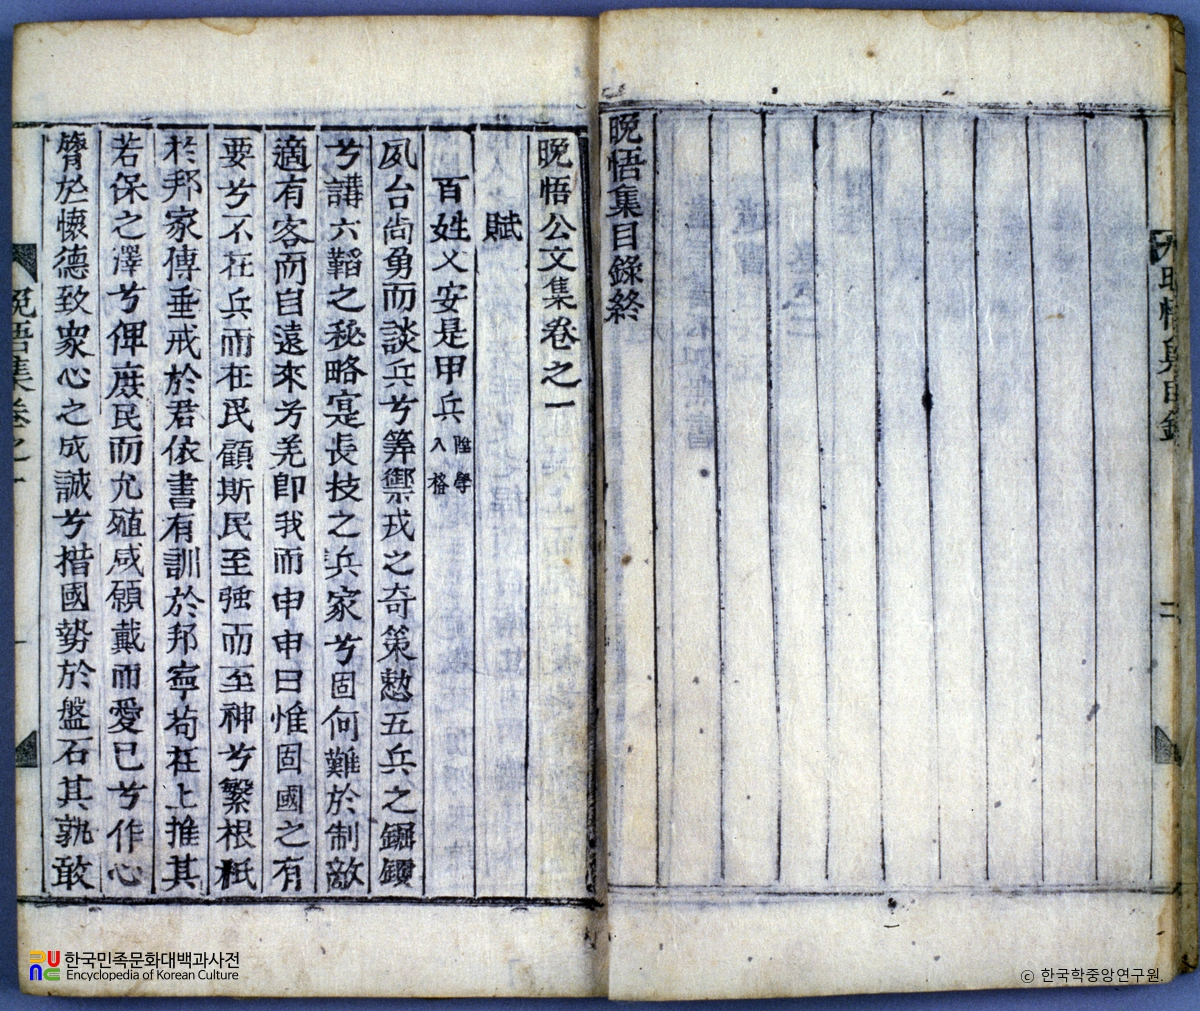 晩悟集目錄終
晩悟公文集卷之一
賦
百姓乂安是甲兵 陞學入格
夙台尙勇而談兵兮筭禦戎之奇策憗五兵之鋸鑽
兮講六韜之秘略寔長技之兵家兮固何難於制敵
適有客而自遠來兮羌卽我而申申曰惟固國之有
要兮不在兵而在民顧斯民至强而至神兮繫根柢
於邦家傳垂戒於君依書有訓於邦寧苟在上推其
若保之澤兮俾庶民而允殖咸願戴而愛已兮作心
膂於懷德致衆心之成誠兮措國勢於盤石其孰敢
晩悟集卷之一
一
目錄
二
한국민족문화대백과사전
Encyclopedia of Korean Culture
ⓒ 한국학중앙연구원